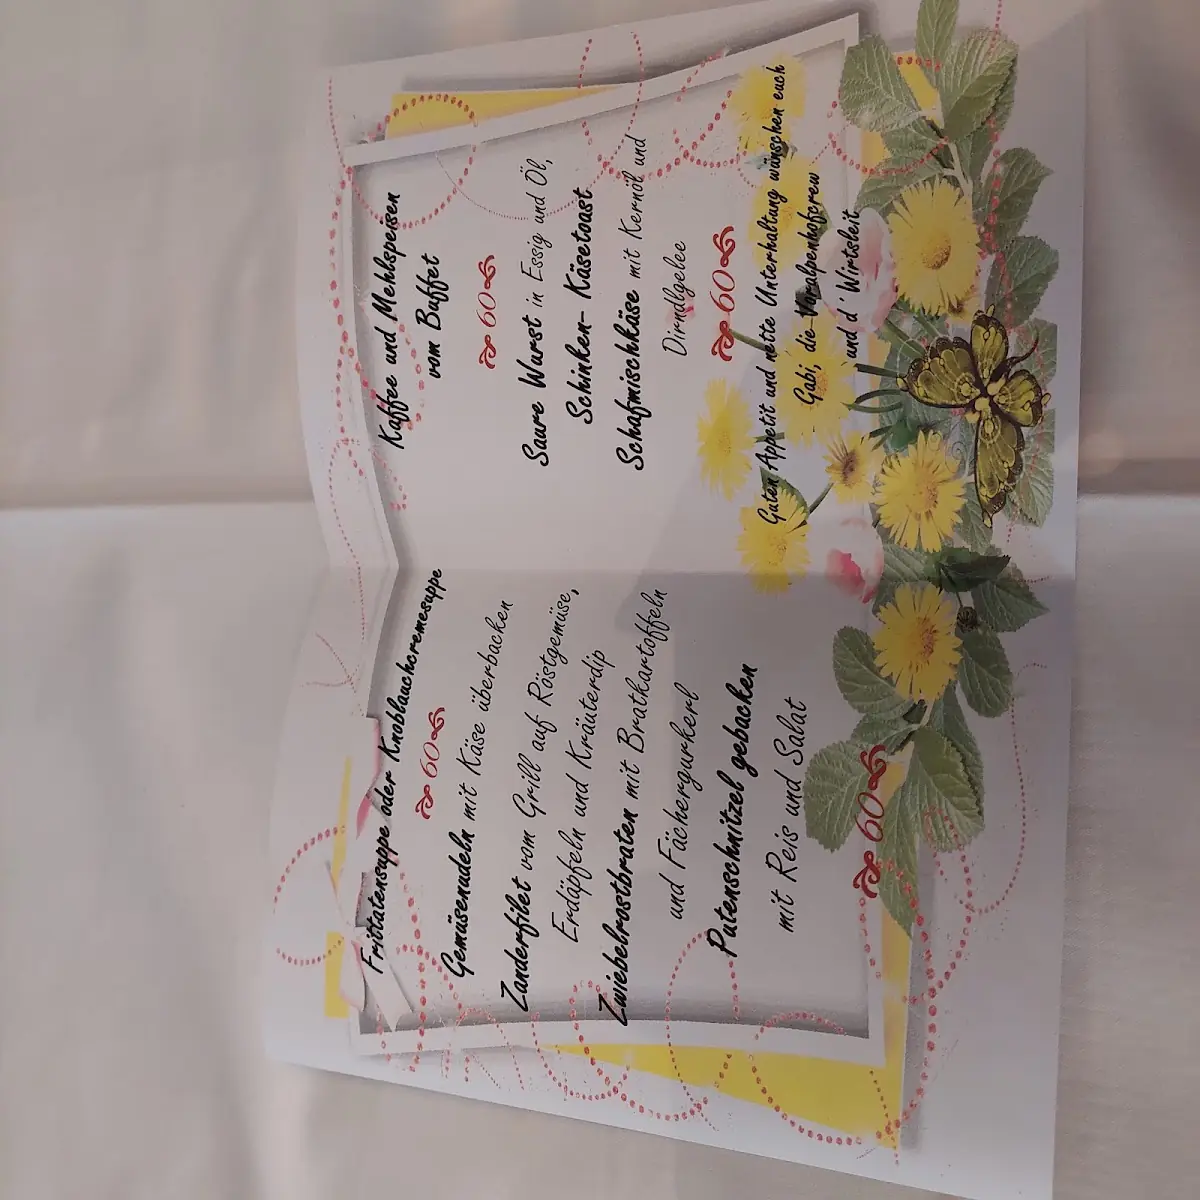 Frittatensuppe oder Knoblauchcremesuppe
60
Gemüsenudeln mit Käse überbacken
Zanderfilet vom Grill auf Röstgemüse,
Erdäpfeln und Kräuterdip
Zwiebelrostbraten mit Bratkartoffeln
und Fächergurkerl
Putenschnitzel gebacken
mit Reis und Salat
60
Kaffee und Mehlspeisen
vom Buffet
60
Saure Wurst in Essig und Öl,
Schinken- Käsetoast
Schafmischkäse mit Kernöl und
Dirndlgelee
60
Guten Appetit und nette Unterhaltung wünschen euch
Gabi, die Voralpenhofcrew
und d' Wirtsleit